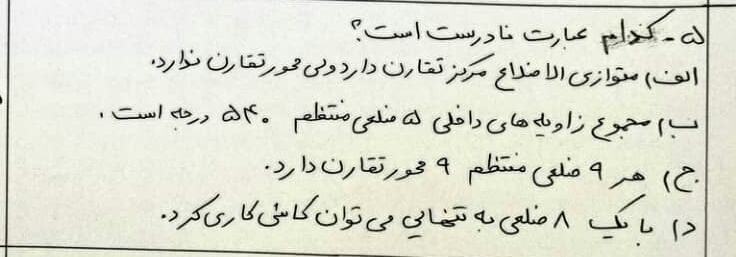 ۵- کدام عبارت نادرست است؟
الف) متوازی الاضلاع مرکز تقارن دارد ولی محور تقارن ندارد.
ب) مجموع زاویه های داخلی ۵ ضلعی منتظم ۵۴۰ درجه است.
ج) هر ۹ ضلعی منتظم ۹ محور تقارن دارد.
د) با یک ۸ ضلعی به تنهایی می توان کاشی کاری کرد.